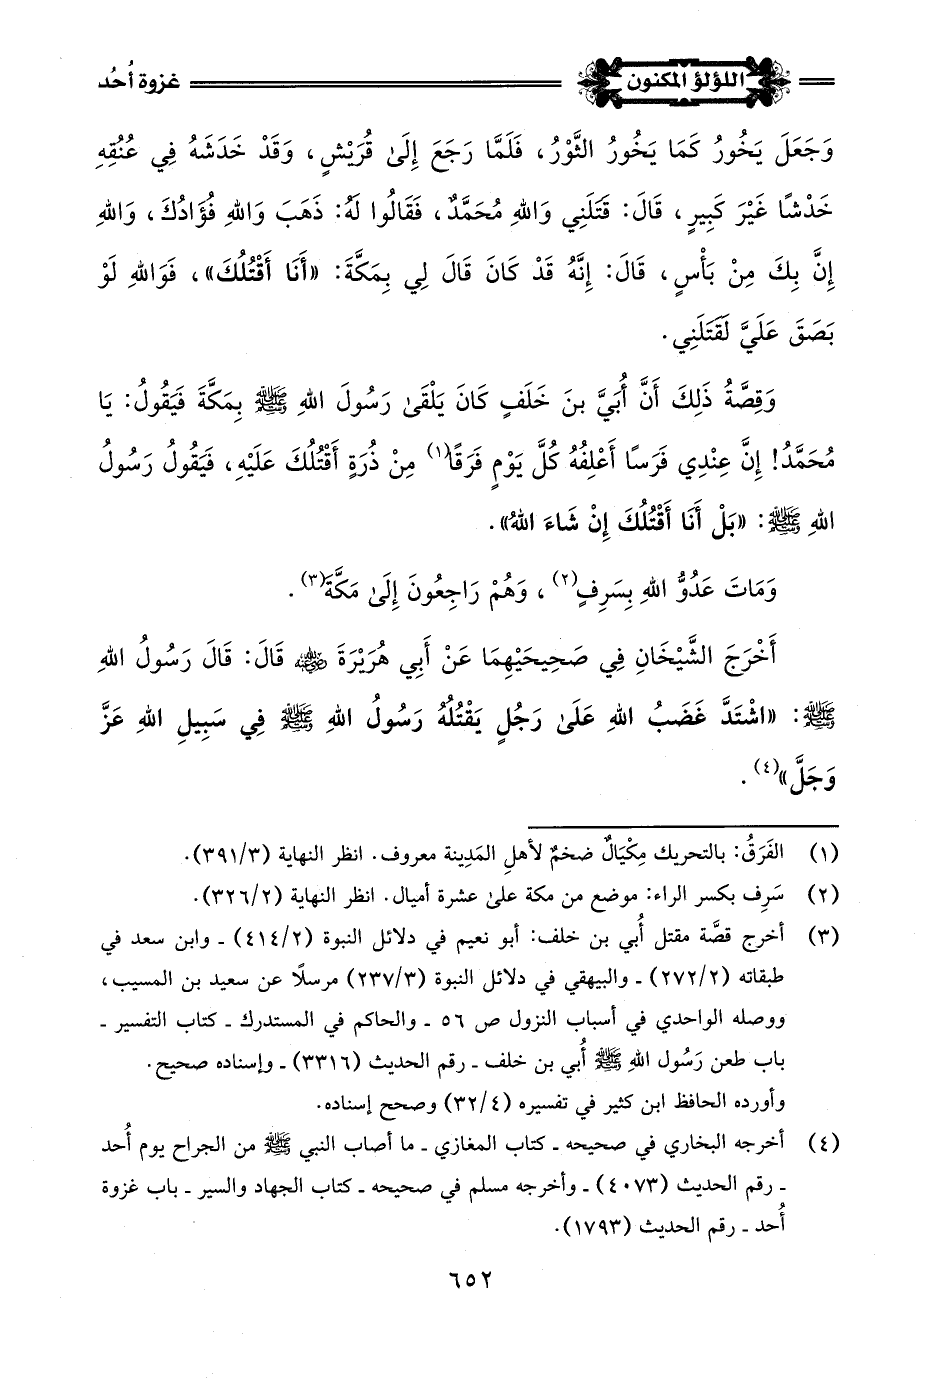 اللؤلؤ المكنون
غزوة أُحُد
وَجَعَلَ يَخُورُ كَمَا يَخُورُ الثَّوْرُ، فَلَمَّا رَجَعَ إِلَىٰ قُرَيْشٍ، وَقَدْ خَدَشَهُ فِي عُنُقِهِ
خَدْشًا غَيْرَ كَبِيرٍ، قَالَ: قَتَلَنِي وَاللهِ مُحَمَّدٌ، فَقَالُوا لَهُ: ذَهَبَ وَاللهِ فُؤَادُكَ، وَاللهِ
إِنَّ بِكَ مِنْ بَأْسٍ، قَالَ: إِنَّهُ قَدْ كَانَ قَالَ لِي بِمَكَّةَ: «أَنَا أَقْتُلُكَ»، فَوَاللهِ لَوْ
بَصَقَ عَلَيَّ لَقَتَلَنِي.
وَقِصَّةُ ذَلِكَ أَنَّ أُبَيَّ بنَ خَلَفٍ كَانَ يَلْقَىٰ رَسُولَ اللهِ ﷺ بِمَكَّةَ فَيَقُولُ: يَا
مُحَمَّدُ! إِنَّ عِنْدِي فَرَسًا أَعْلِفُهُ كُلَّ يَوْمٍ فَرَقًا(١) مِنْ ذُرَةٍ أَقْتُلُكَ عَلَيْهِ، فَيَقُولُ رَسُولُ
اللهِ ﷺ: «بَلْ أَنَا أَقْتُلُكَ إِنْ شَاءَ اللهُ».
وَمَاتَ عَدُوُّ اللهِ بِسَرِفٍ(٢)، وَهُمْ رَاجِعُونَ إِلَىٰ مَكَّةَ(٣).
أَخْرَجَ الشَّيْخَانِ فِي صَحِيحَيْهِمَا عَنْ أَبِي هُرَيْرَةَ رضي الله عنه قَالَ: قَالَ رَسُولُ اللهِ
ﷺ: «اشْتَدَّ غَضَبُ اللهِ عَلَىٰ رَجُلٍ يَقْتُلُهُ رَسُولُ اللهِ ﷺ فِي سَبِيلِ اللهِ عَزَّ
وَجَلَّ»(٤).
(١) الفَرَقُ: بالتحريك مِكْيَالٌ ضخمٌ لأهلِ المَدِينة معروف. انظر النهاية (٣٩١/٣).
(٢) سَرِف بكسر الراء: موضع من مكة علىٰ عشرة أميال. انظر النهاية (٣٢٦/٢).
(٣) أخرج قصَّة مقتل أُبي بن خلف: أبو نعيم في دلائل النبوة (٤١٤/٢) ـ وابن سعد في
طبقاته (٢٧٢/٢) ـ والبيهقي في دلائل النبوة (٢٣٧/٣) مرسلًا عن سعيد بن المسيب،
ووصله الواحدي في أسباب النزول ص ٥٦ ـ والحاكم في المستدرك ـ كتاب التفسير ـ
باب طعن رَسُول اللهِ ﷺ أُبي بن خلف ـ رقم الحديث (٣٣١٦) ـ وإسناده صحيح.
وأورده الحافظ ابن كثير في تفسيره (٣٢/٤) وصحح إسناده.
(٤) أخرجه البخاري في صحيحه ـ كتاب المغازي ـ ما أصاب النبي ﷺ من الجراح يوم أُحد
ـ رقم الحديث (٤٠٧٣) ـ وأخرجه مسلم في صحيحه ـ كتاب الجهاد والسير ـ باب غزوة
أُحد ـ رقم الحديث (١٧٩٣).
٦٥٢